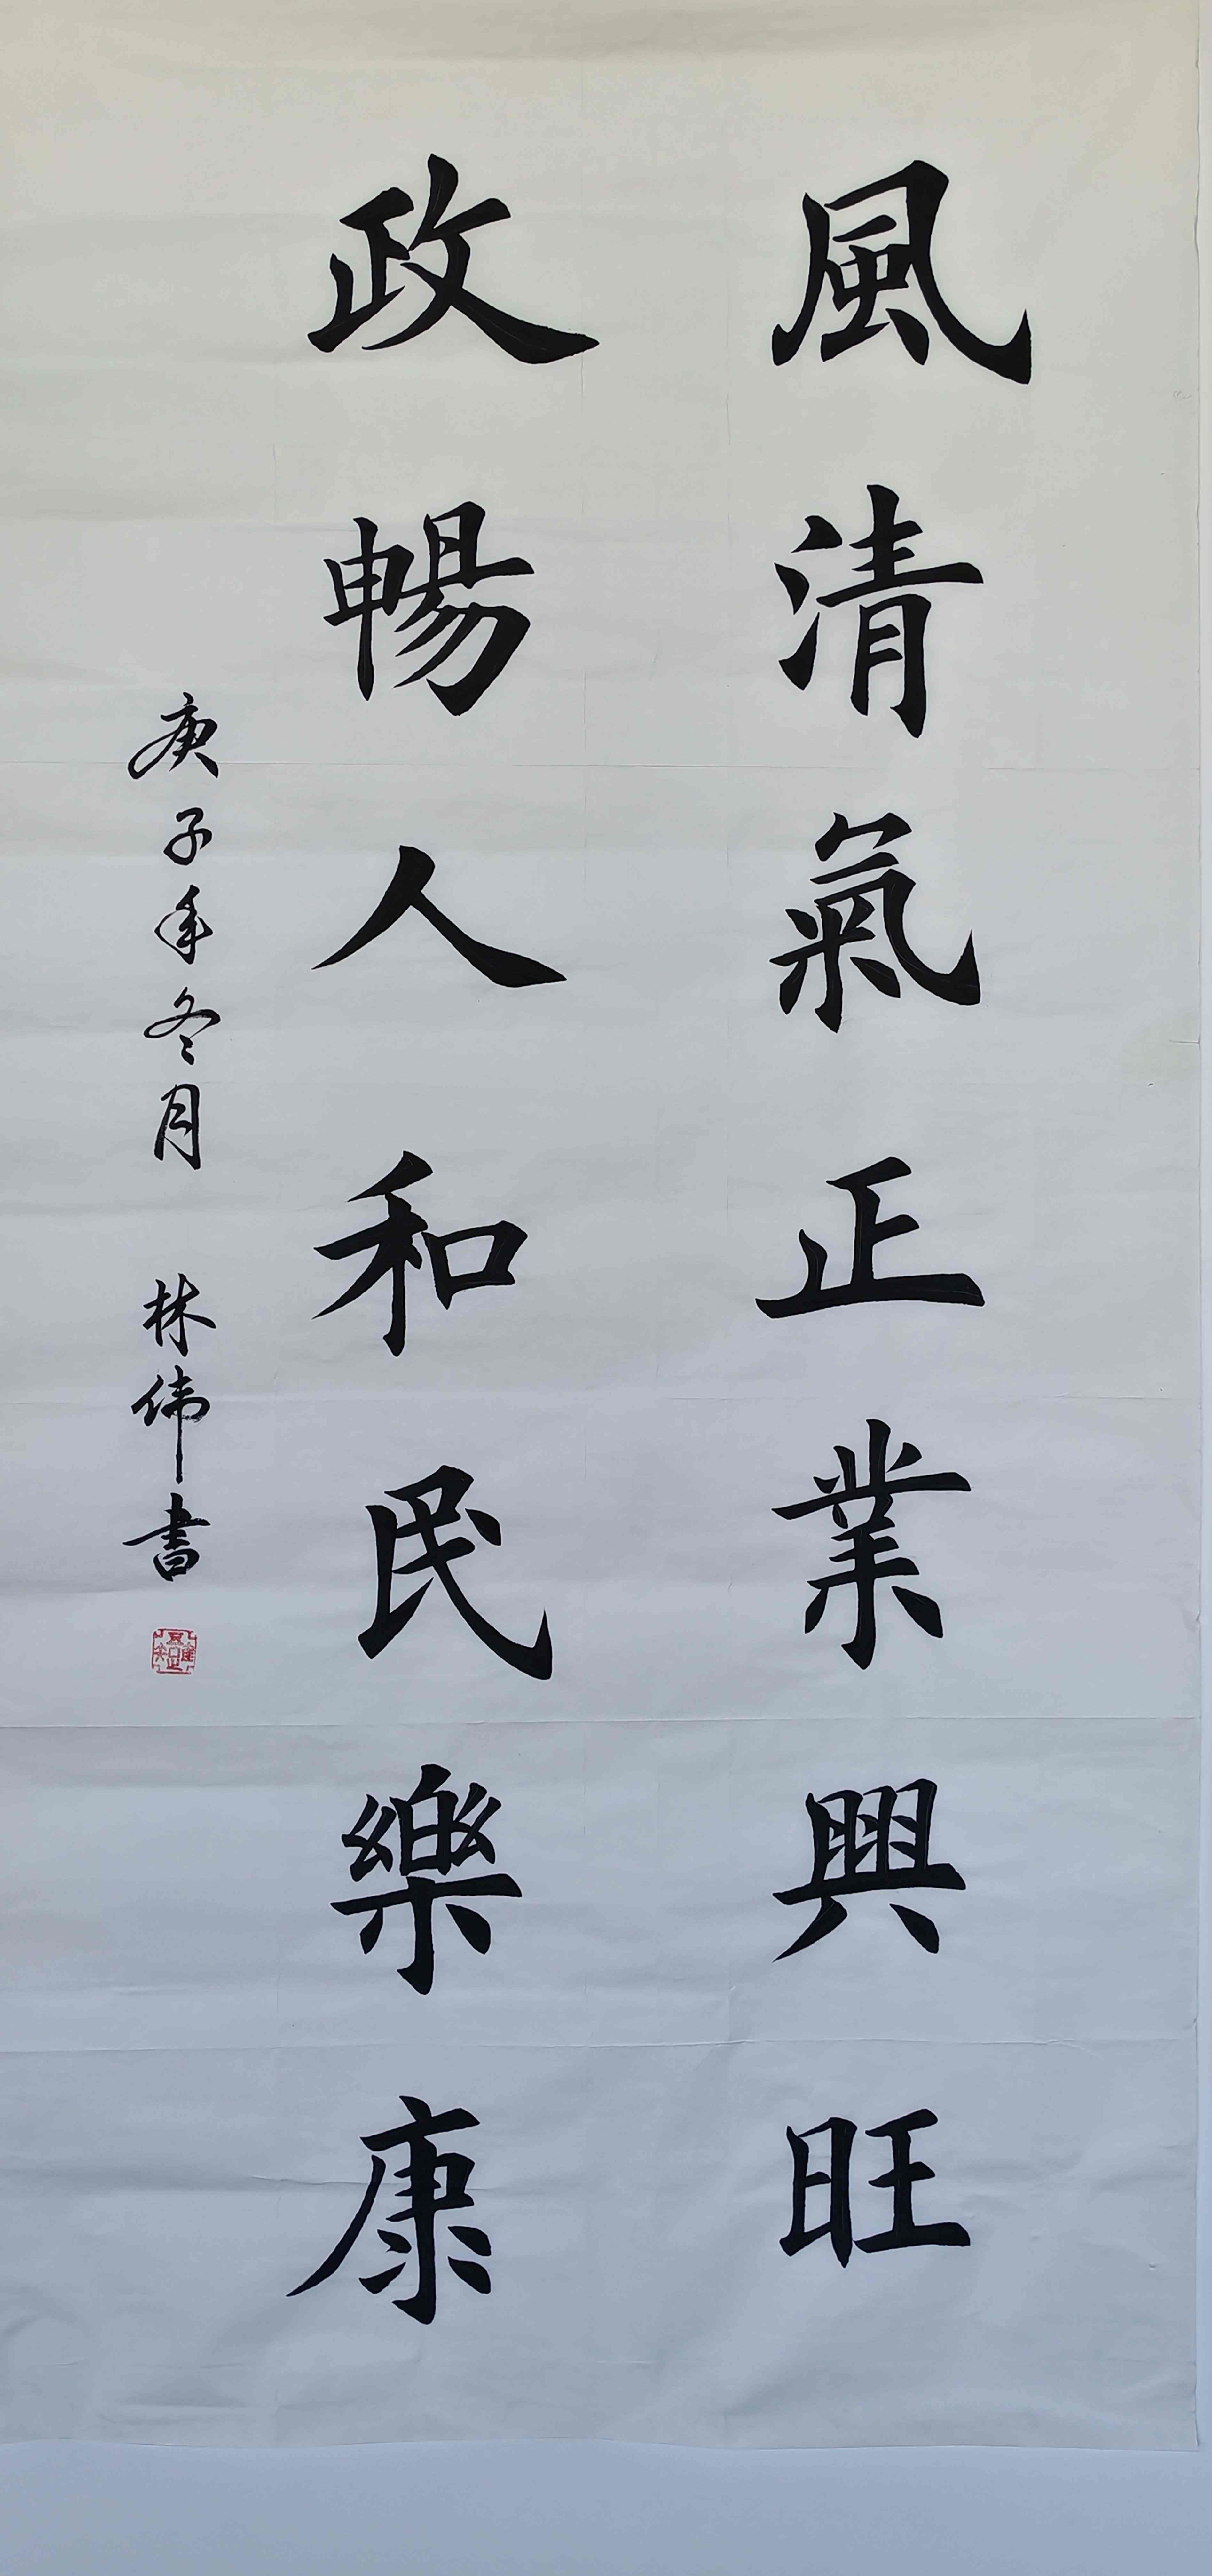 風清氣正業興旺
政暢人和民樂康
庚子年冬月 林伟書